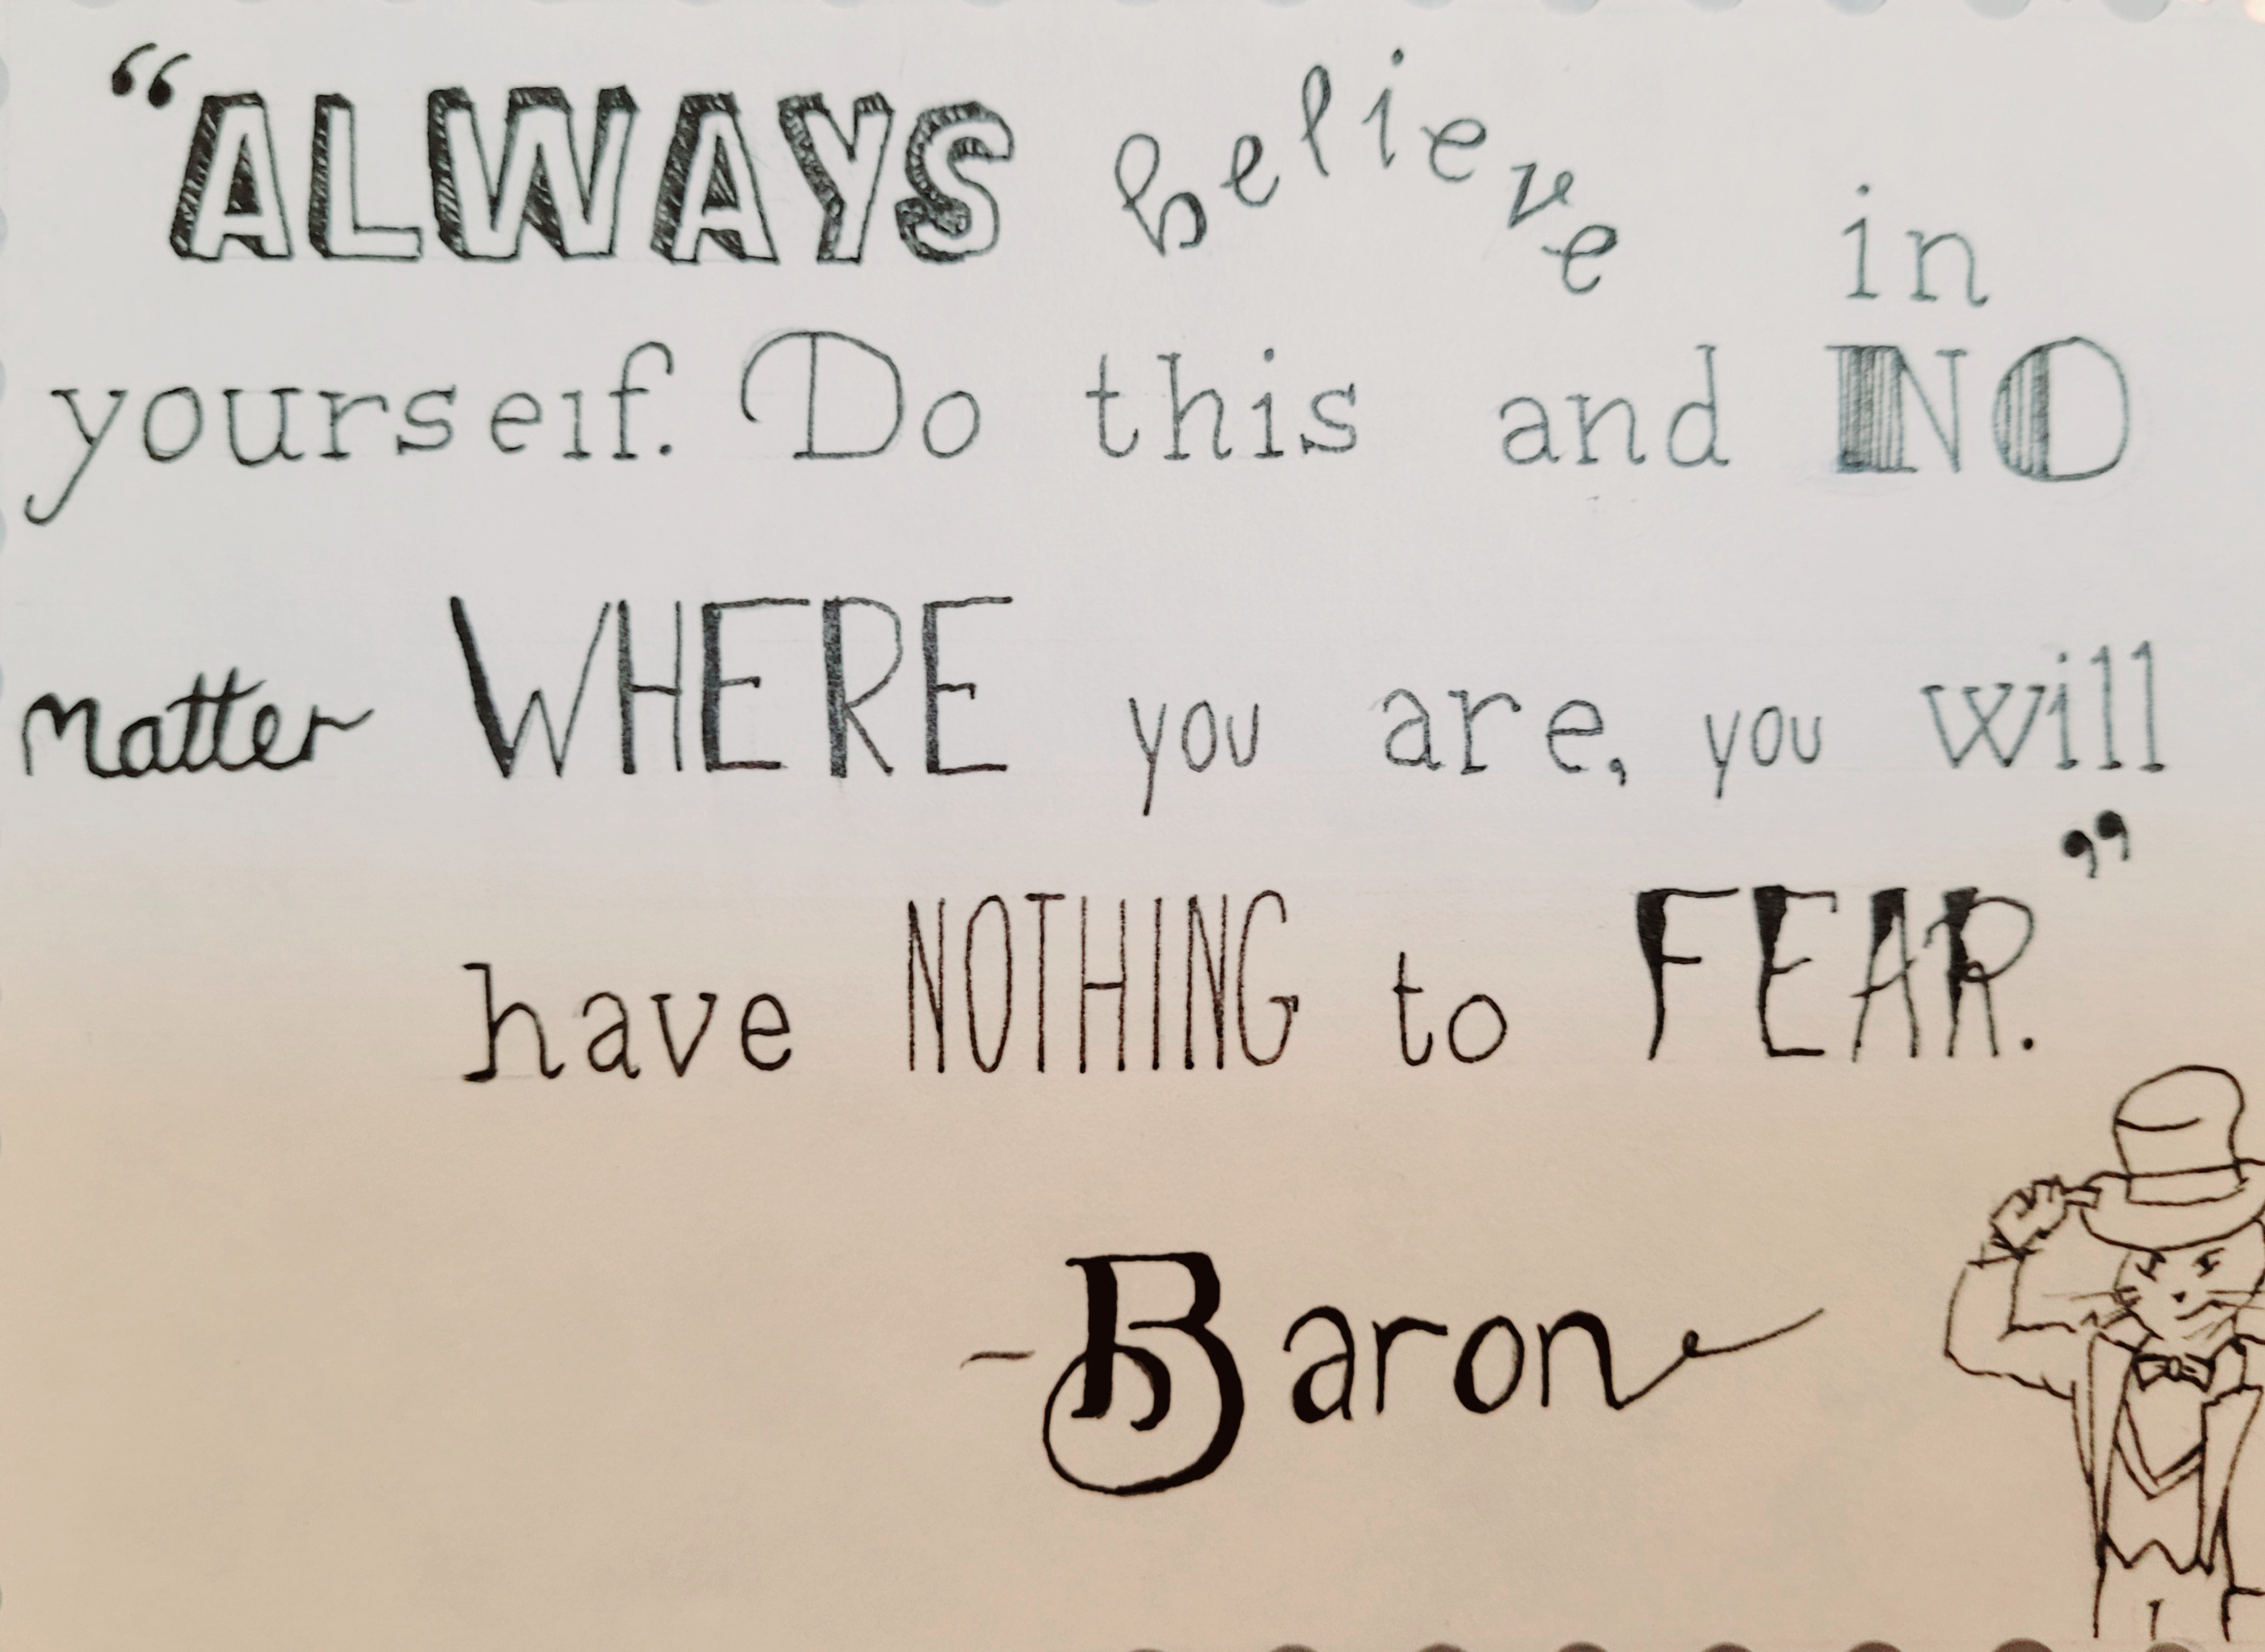 “ALWAYS believe in
yourself. Do this and NO
matter WHERE you are, you will
have NOTHING to FEAR.”
-Baron